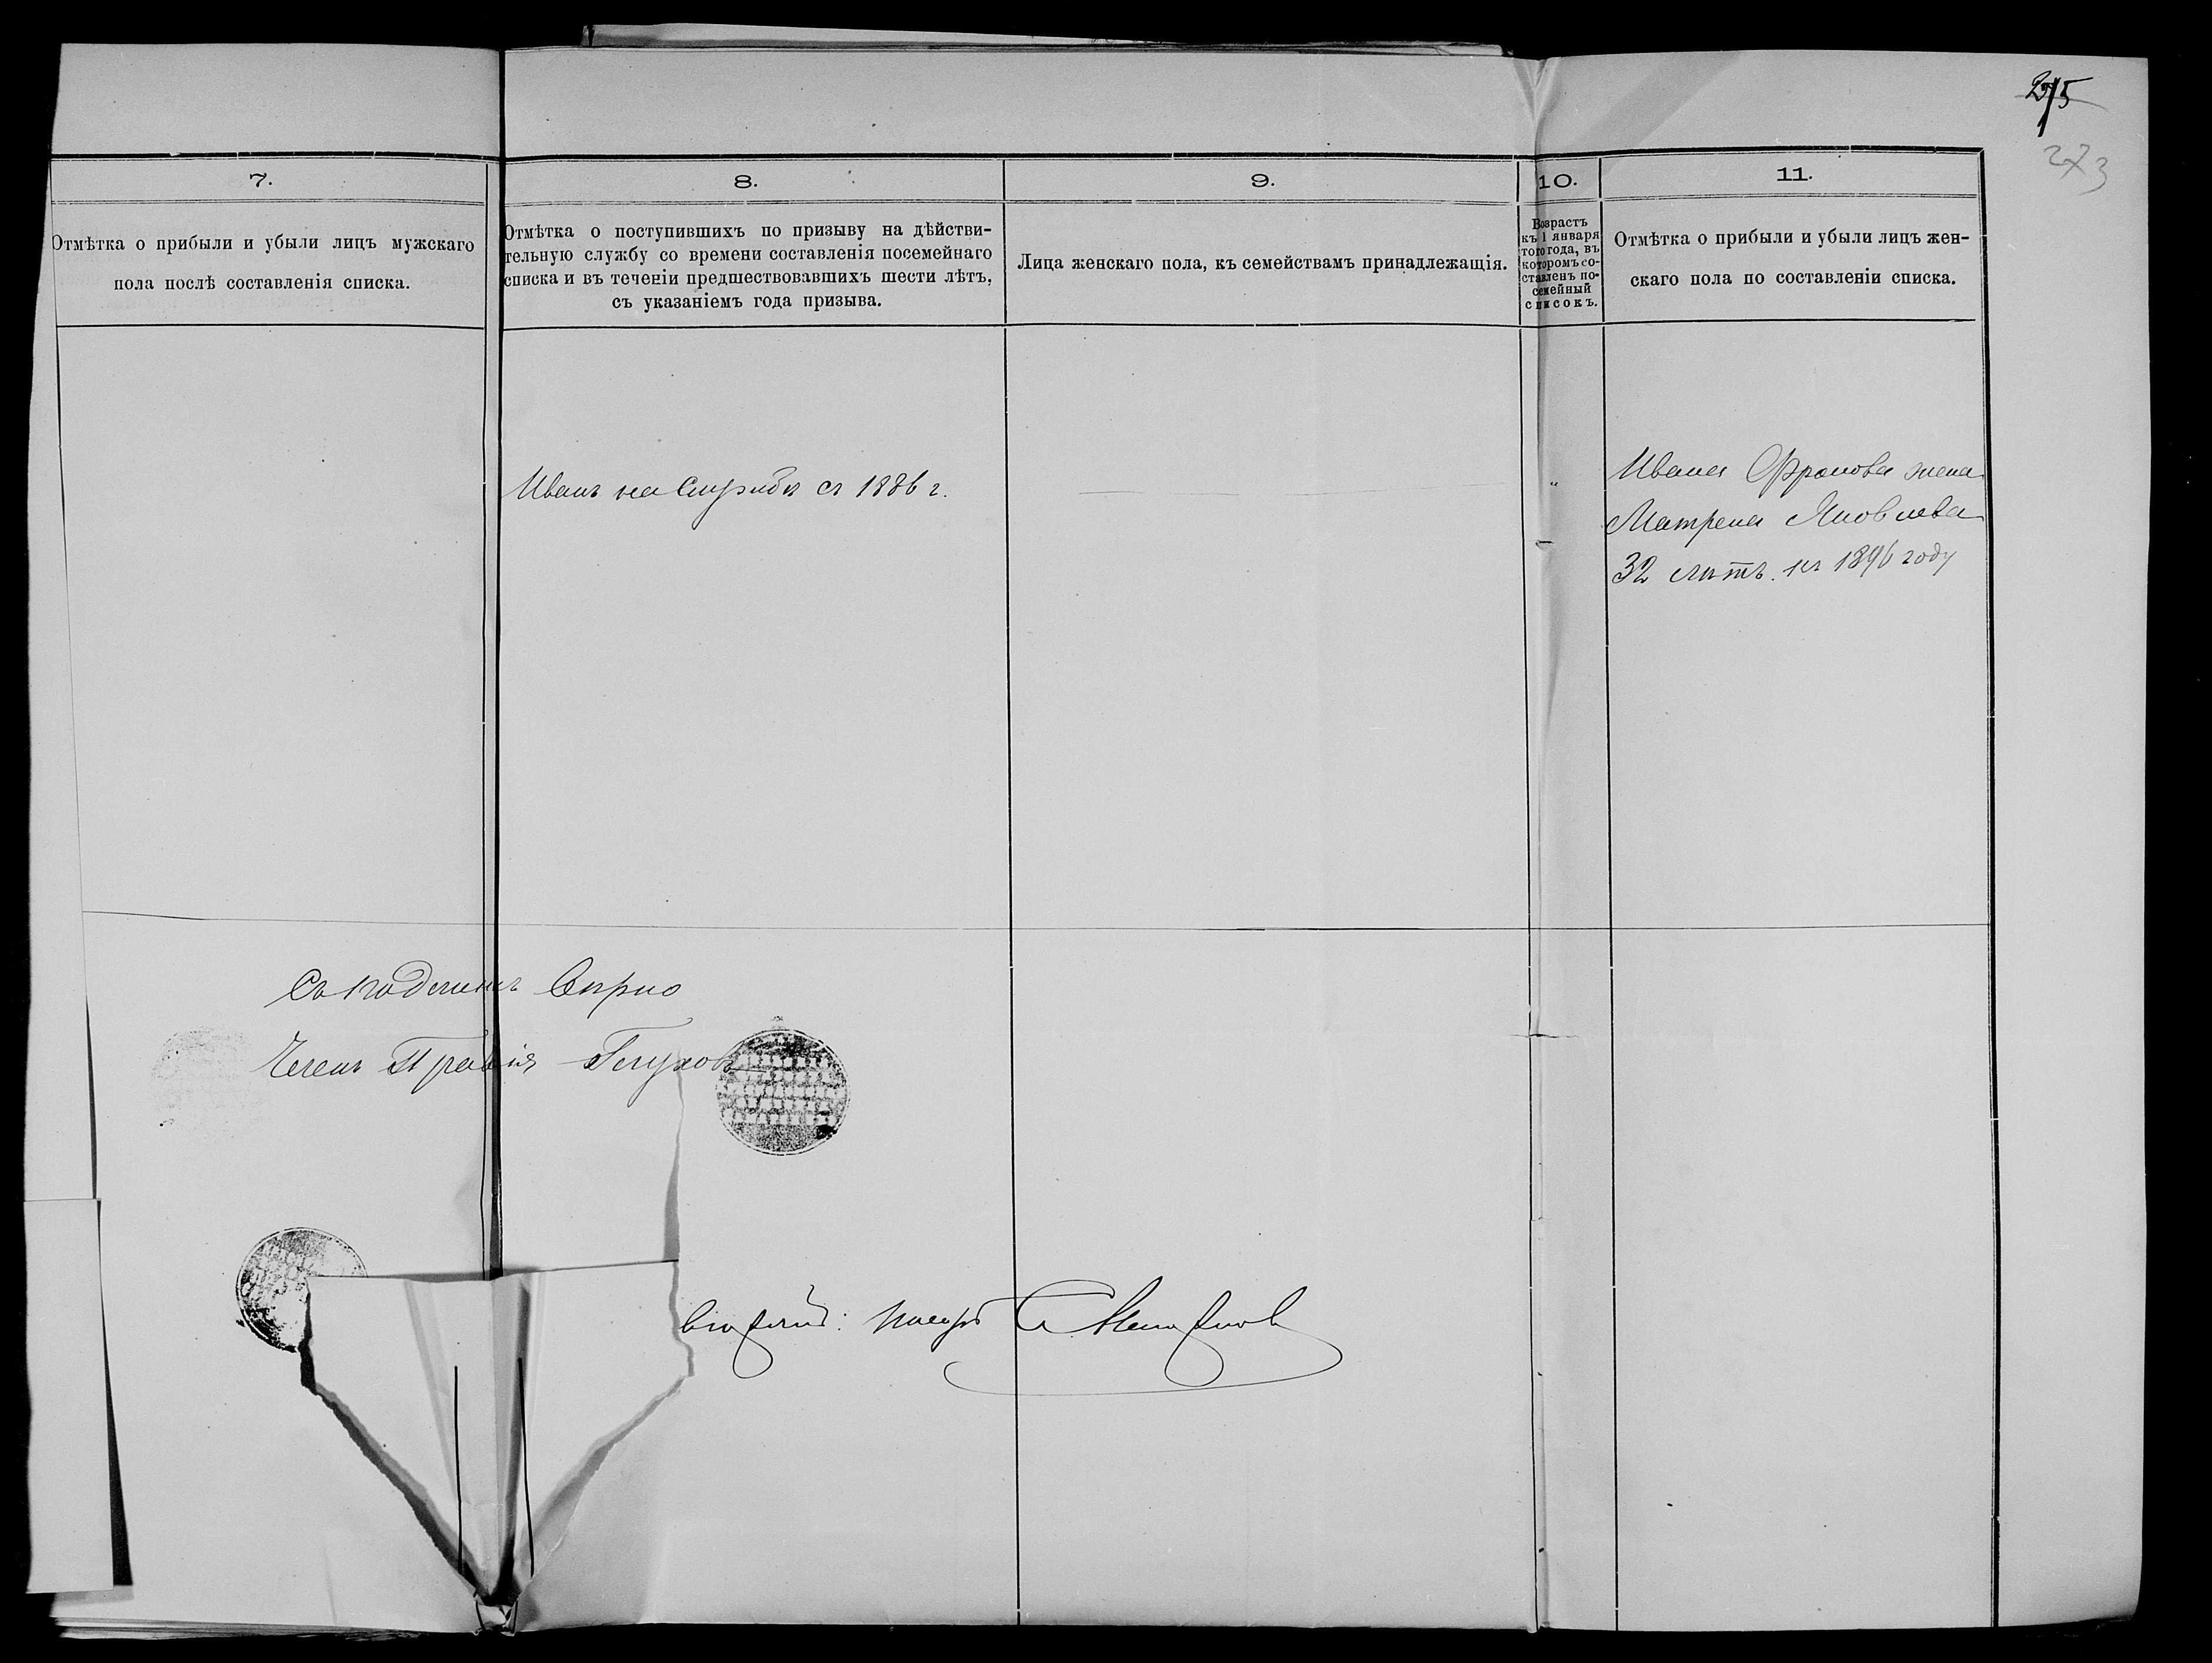 275
273
7.
8.
9.
10.
11.
Отмѣтка о прибыли и убыли лицъ мужскаго
пола послѣ составленія списка.
Отмѣтка о поступившихъ по призыву на дѣйстви-
тельную службу со времени составленія посемейнаго
списка и въ теченіи предшествовавшихъ шести лѣтъ,
съ указаніемъ года призыва.
Лица женскаго пола, къ семействамъ принадлежащія.
Возрастъ
къ 1 января
того года, въ
которомъ со-
ставленъ по-
семейный
списокъ.
Отмѣтка о прибыли и убыли лицъ жен-
скаго пола по составленіи списка.
Иванъ на службѣ съ 1886 г.
Ивана Фролова жена
Матрена Яковлева
32 лѣтъ. къ 1896 году
Съ подлин. Вѣрно
Членъ Правлія Глухов